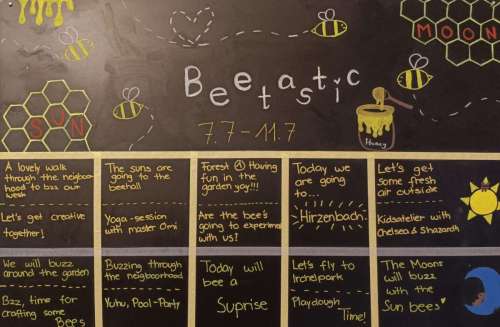 MOON
Beetastic
SUN
Hunny
7.7-11.7
A lovely walk
through the neighbor
hood to bzz our
week
Let's get creative
together!
The suns are
going to the
beehall
Yoga-session
with master Omi
Forest A Having
fun in the
garden yay!!!
Are the bee's
going to experiment
with us?
Today we
are going
to...
Hirzenbach
Let's get
some fresh
air outside
Kidsatelier with
Chelsea & Shazardh
We will buzz
around the garden
Bzz, time for
crafting some
Bees
Buzzing through
the neigboorhood
Yuhu, Pool-Party
Today will
bee a
Suprise
Let's fly to
Irchelpark
Playdough
Time!
The Moons
will buzz
with the
Sun bees